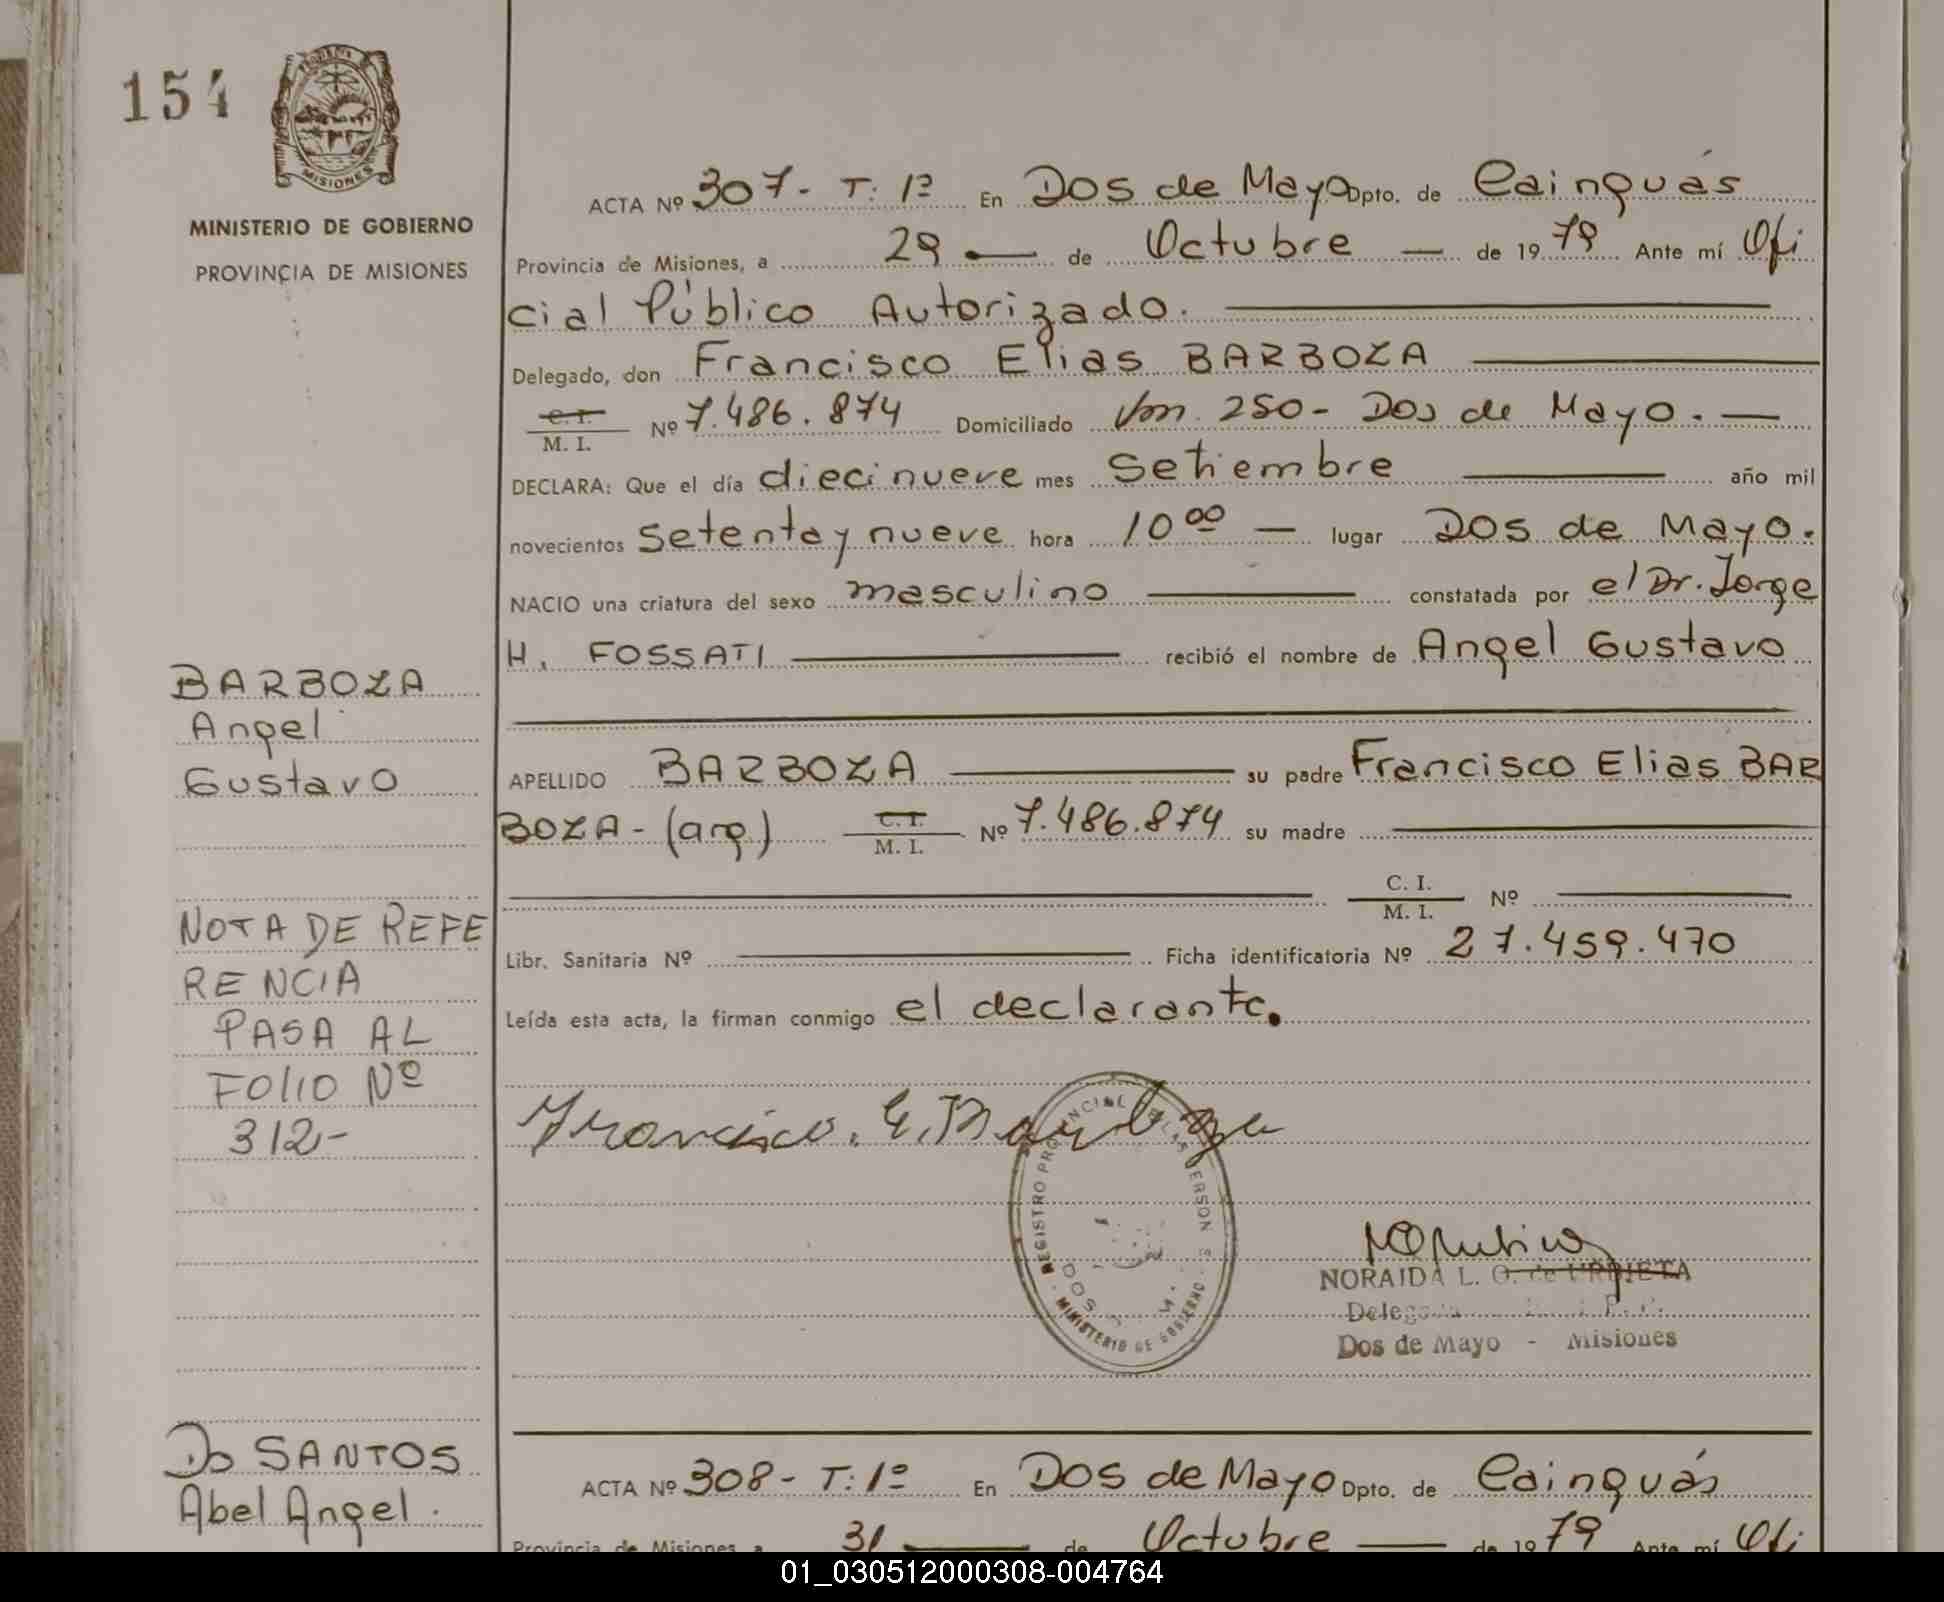 154
MISIONES
MINISTERIO DE GOBIERNO
PROVINCIA DE MISIONES
ACTA Nº 307- T: 1º En Dos de Mayo Dpto. de Cainguás
Provincia de Misiones, a 29 — de Octubre — de 1979 Ante mí Ofi
cial Público Autorizado.
Delegado, don Francisco Elias BARBOZA
C. I.
M. I. Nº 7.486.874 Domiciliado Von. 250- Dos de Mayo. —
DECLARA: Que el día diecinueve mes Setiembre año mil
novecientos setenta y nueve hora 10 00 — lugar Dos de Mayo.
NACIO una criatura del sexo masculino constatada por el Dr. Jorge
H. FOSSATI recibió el nombre de Angel Gustavo
BARBOZA
Angel
Gustavo
APELLIDO BARBOZA su padre Francisco Elias BAR
BOZA- (arg) C. I.
M. I. Nº 7.486.874 su madre
C. I.
M. I. Nº
NOTA DE REFE
RENCIA
PASA AL
FOLIO Nº
312-
Libr. Sanitaria Nº Ficha identificatoria Nº 27.459.470
Leída esta acta, la firman conmigo el declarante.
Francisco. E. Barboza
REGISTRO PROVINCIAL DE LAS PERSONAS
MINISTERIO DE GOBIERNO
DOS
NORAIDA L. O. de URBIETA
Dos de Mayo - Misiones
Do SANTOS
Abel Angel.
ACTA Nº 308- T: 1º En Dos de Mayo Dpto. de Cainguás
Provincia de Misiones a 31 — de Octubre — de 1979 Ante mí Ofi
01_030512000308-004764